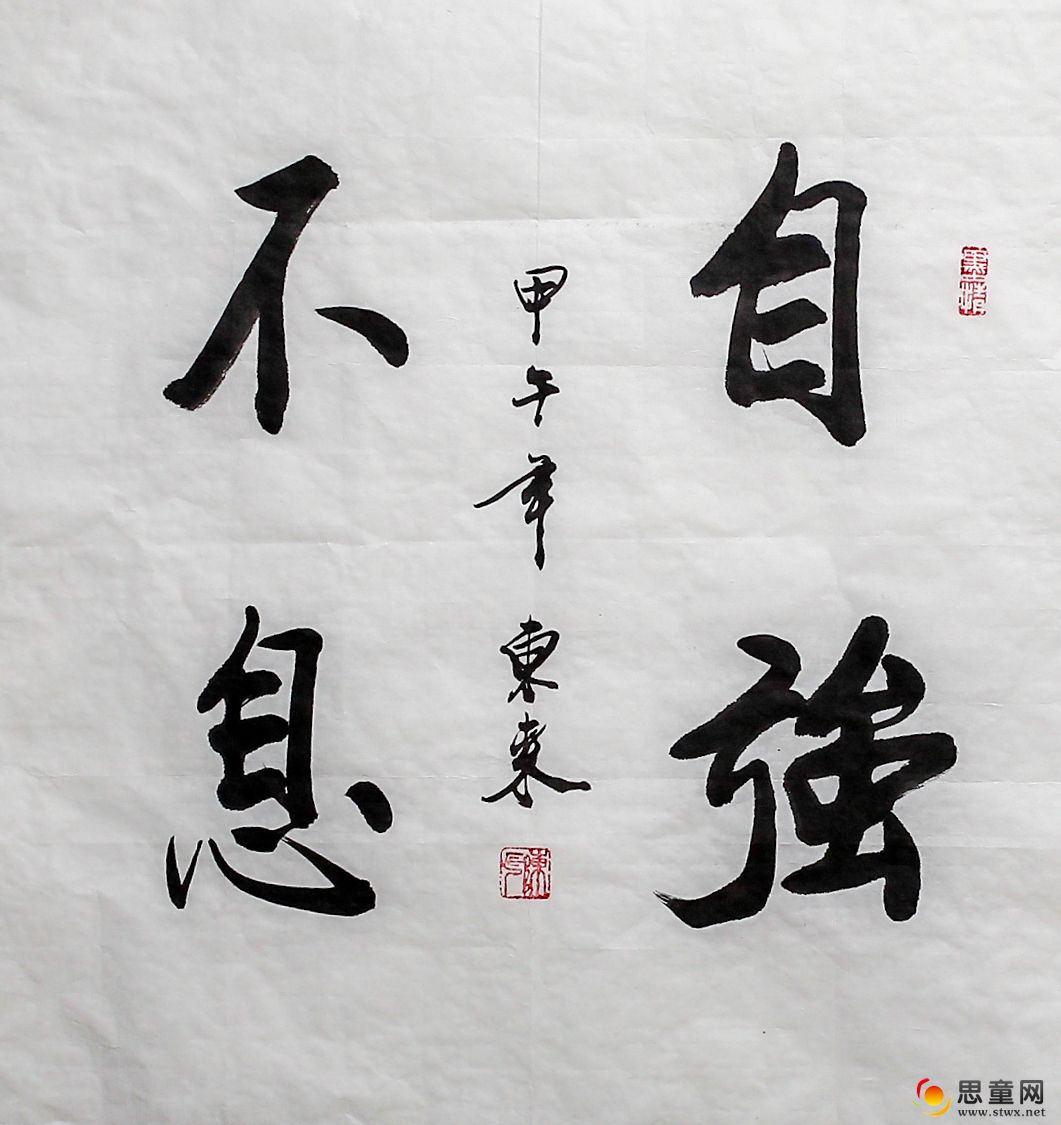 自強
不息
甲午年 東來
思童网
www.stwx.net